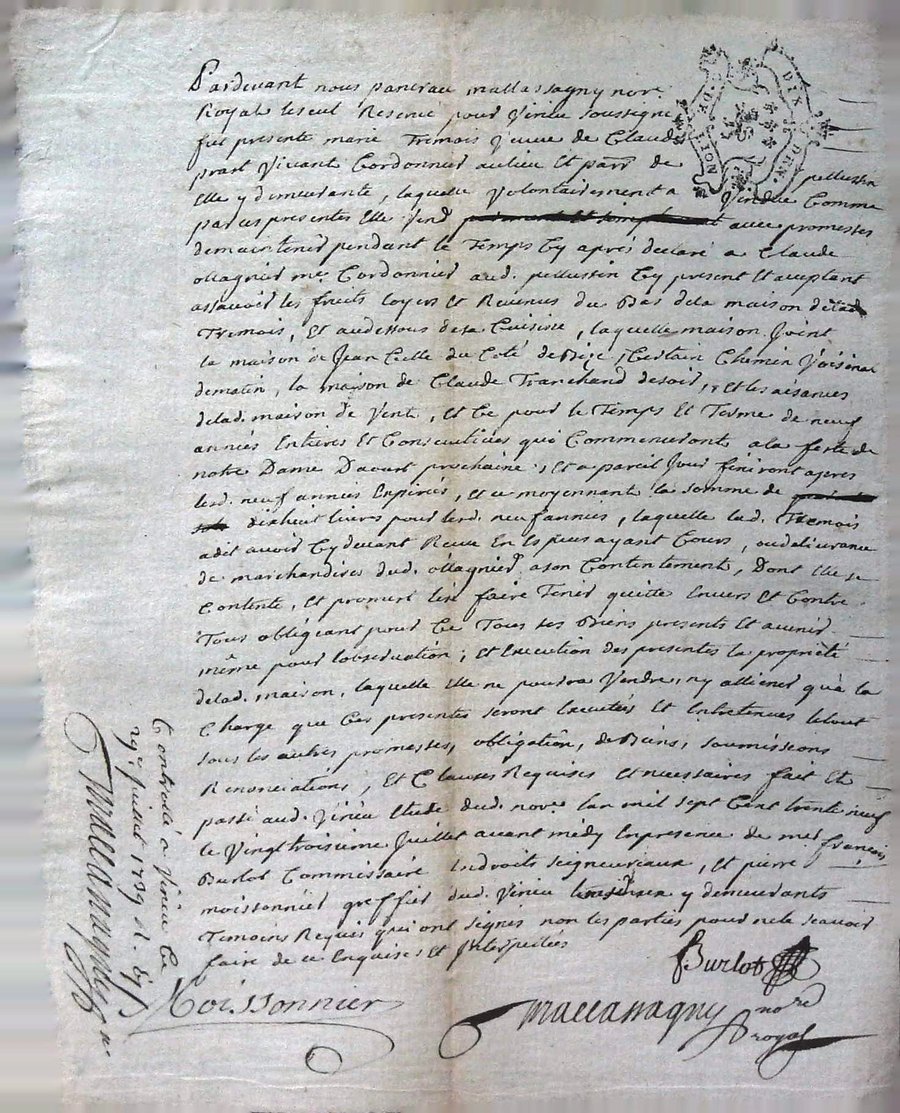 Pardevant nous pancrau mallassagny nore.
Royal le seul Reservé pour Virieu soussigné
fut presente marie Tremois Veuve de Claude
prast Vivant Cordonnier au lieu et parr. de pellussin
Elle y demeurante, laquelle volontairement a Vendu Comme
par ces presentes Elle Vend avec promesses
de maintenir pendant le Temps Cy aprés declaré a Claude
ollagnier me. Cordonnier aud. pellussin Cy present et acceptant
assavoir les fruits loyers et Revenus du Bas de la maison de lad.
Tremois, Et au dessous de sa Cuisine, laquelle maison Joint
la maison de Jean Celle du Coté de Bize, Certain Chemin Voisinal
de matin, la maison de Claude Tranchand de soir, et les aisances
de lad. maison de Vent, et Ce pour le Temps et Terme de neuf
années Entieres et Consecutives qui Commenceront a la feste de
notre Dame Daoust prochaine, et a pareil Jour finiront apres
lesd. neuf années Expirés, et ce moyennant la somme de
dixhuit livres pour lesd. neuf années, laquelle lad. Tremois
a dit avoir Cy devant Receue En Espeses ayant Cours, ou delivrance
de marchandises dud. ollagnier a son Contentement, Dont Elle se
Contente, et promet l'en faire Tenir quitte Envers et Contre
Tous obligeant pour Ce Tous ses Biens presents et avenir
même pour lobservation, et Execution des presentes la proprieté
de lad. maison, laquelle Elle ne pourra Vendre, ny alliener qu'a la
Charge que Ces presentes seront Executées et Entretenues le tout
sous les autres promesses, obligaôn, de Biens, soumissions
Renonciations, et Clauses Requises et necessaires fait et
passé aud. Virieu Etude dud. nore. lan mil sept Cent trente neuf
le Vingt troisieme Juillet avant midy En presence de me. françois
Burlot Commissaire Es droits seigneuriaux, et pierre
moissonnier greffier dud. Virieu y demeurants
Temoins Requis qui ont signés non les parties pour ne le scavoir
faire de ce Enquises et Interpellées
Burlot
Moissonnier
mallassagny nore
royal
Controllé à Virieu le
29e. Juillet 1739
mallassagny
DIX DEN.
LION